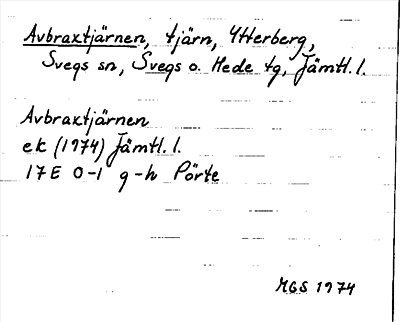 Avbraxtjärnen, tjärn, Ytterberg,
Svegs sn, Svegs o. Hede tg, Jämtl. l.
Avbraxtjärnen
ek (1974) Jämtl. l.
17E 0-1 g-h Pörte
MGS 1974